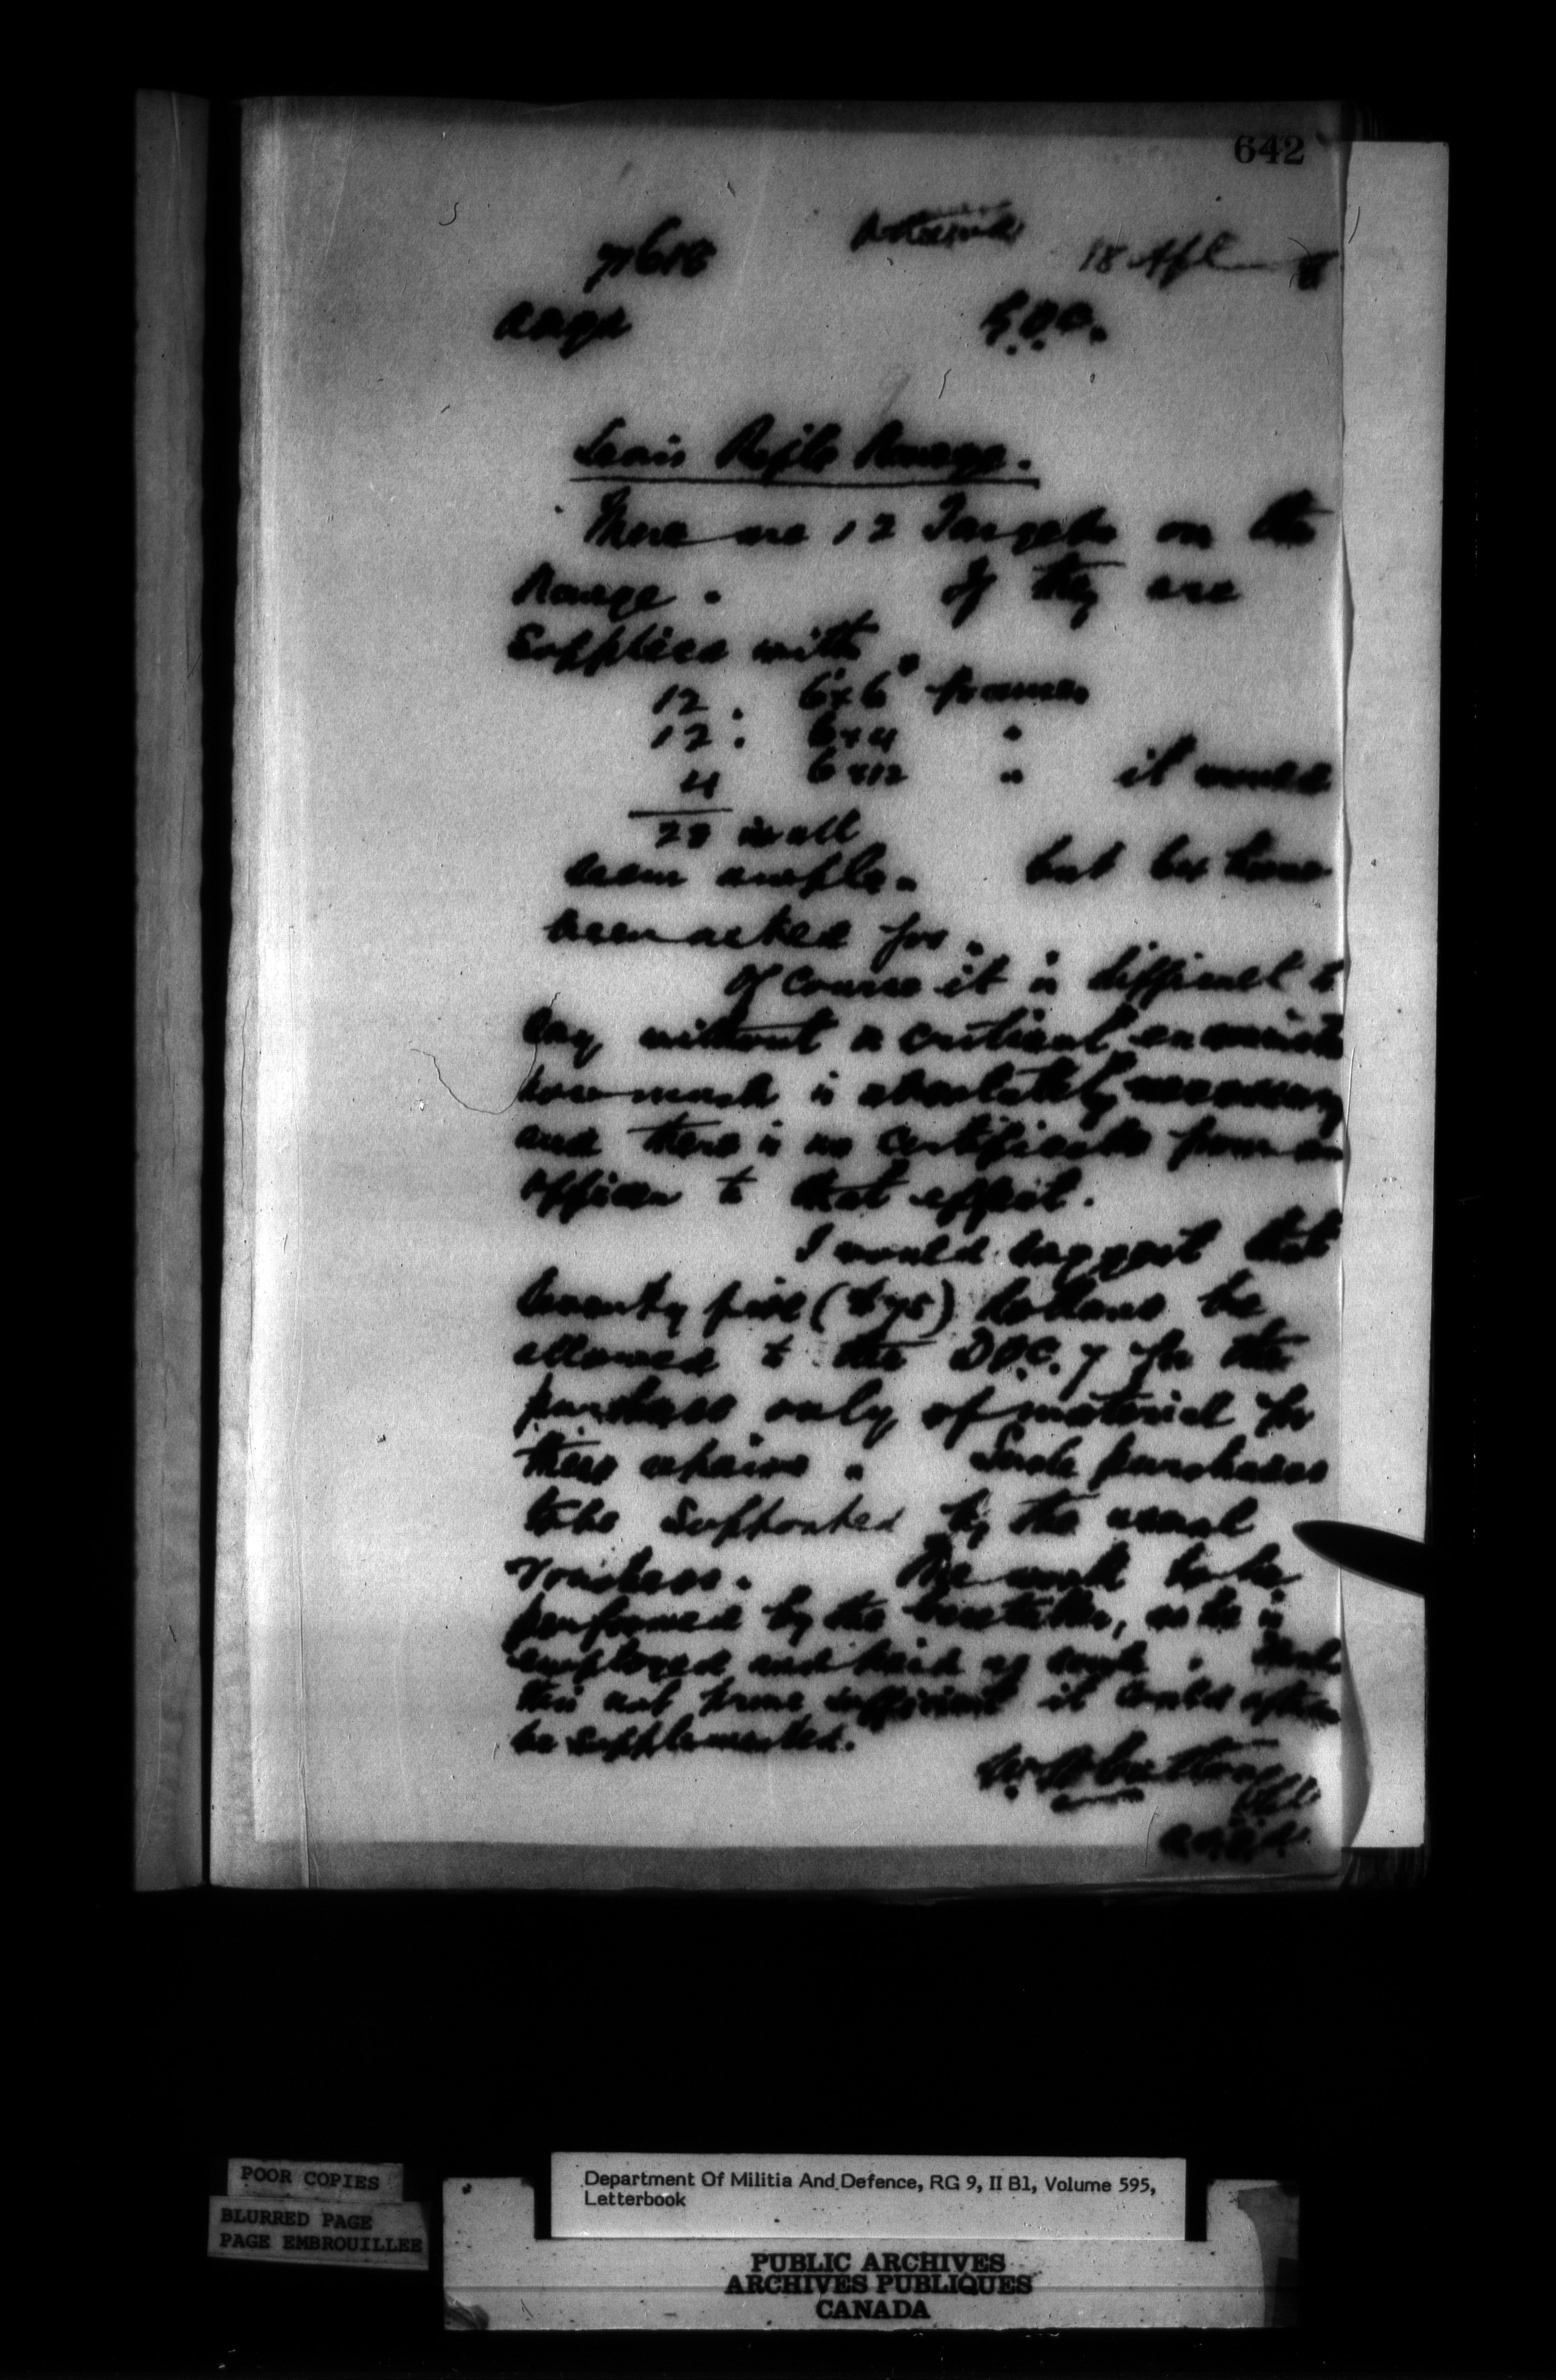 642
71618
Ottawa 18 Apl
G.O.C.
Levis Rifle Range.
There are 12 Targets on the
Range. If they are
Supplied with
12. 6x6 frames
12. 6x4 "
4 6x12 " it would
28 in all
seem ample. but have
been asked for.
Of course it is difficult to
say without a critical
how much is absolutely necessary
and there is no certificate from an
officer to that effect.
I would suggest that
Seventy five ($75) dollars be
allowed to the D.O.C. 7 for the
purchase only of material for
these repairs. Such purchases
to be supported by the usual
vouchers. The work to be
performed by the caretaker, as he is
employed and paid as such.
this not prove sufficient it could after
be supplemented.
POOR COPIES
BLURRED PAGE
PAGE EMBROUILLEE
Department Of Militia And Defence, RG 9, II B1, Volume 595,
Letterbook
PUBLIC ARCHIVES
ARCHIVES PUBLIQUES
CANADA